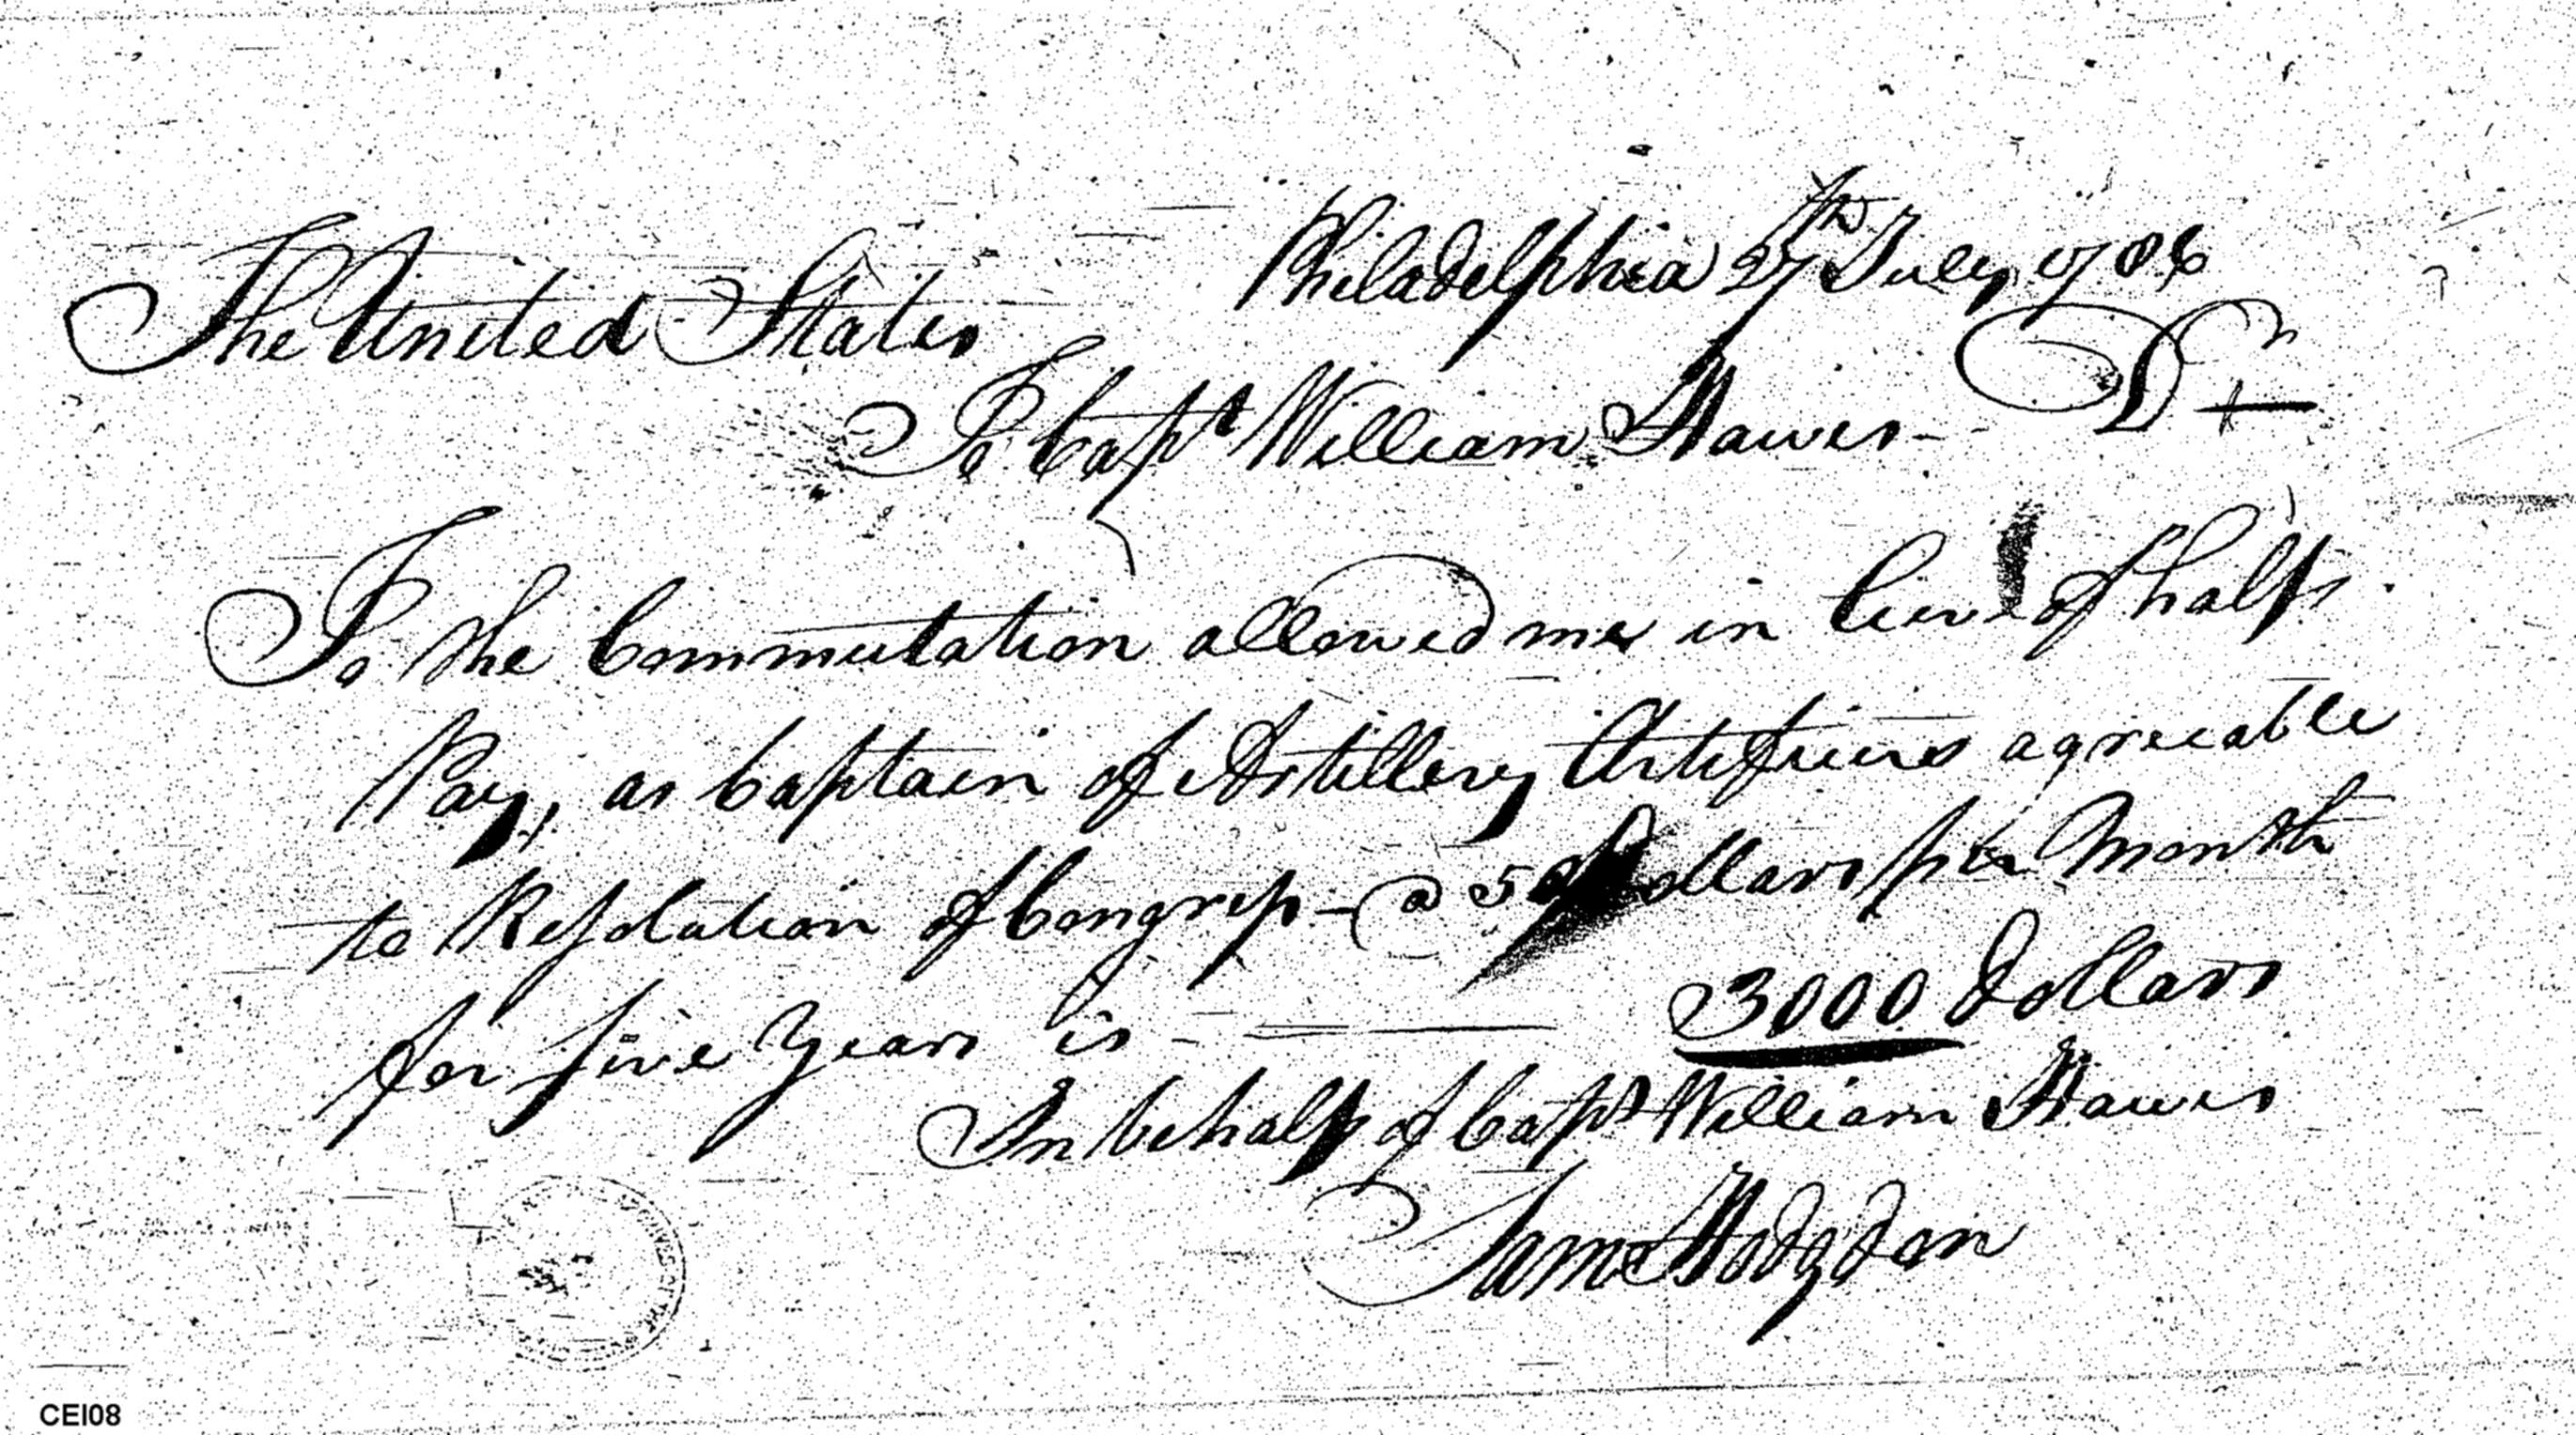 Philadelphia 27th July 1786
The United States Dr
To Capt William Hawes
To the Commutation allowed me in lieu of half
Pay, as Captain of Artillery Artificers agreeable
to Resolution of Congress @ 50 Dollars per Month
for five Years is 3000 Dollars
In behalf of Capt William Hawes
Saml Hodgdon
CEI08